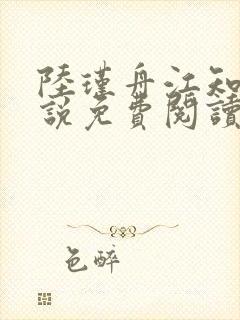 陸瑾舟江知
說免費閱讀
色醉